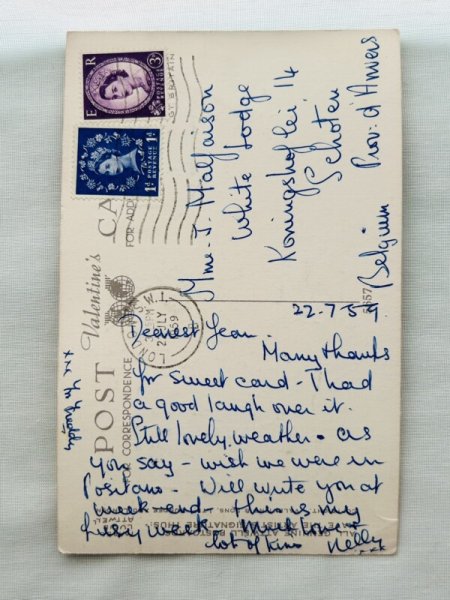 E R
3D
POSTAGE REVENUE
1D 1D
POSTAGE REVENUE
GT BRITAIN
POST CARD
Valentine's
FOR CORRESPONDENCE
FOR ADDRESS
LONDON S.W.1.
PM
JLY
1959
Mme. J. Malfaison
White Lodge
Koningshoflei 14
Schoten
Prov: d'Anvers
Belgium
22-7-59
Dearest Jean.
Many thanks
for sweet card - I had
a good laugh over it.
Still lovely weather - as
you say - wish we were in
Positano - Will write you at
week end - this is my
fussy week. Much love
lot of kiss Nelly
xxx
xxx
ALL GENUINE ATTWELL POSTCARDS
THE ARTIST'S SIGNATURE THUS:
ATTWELL